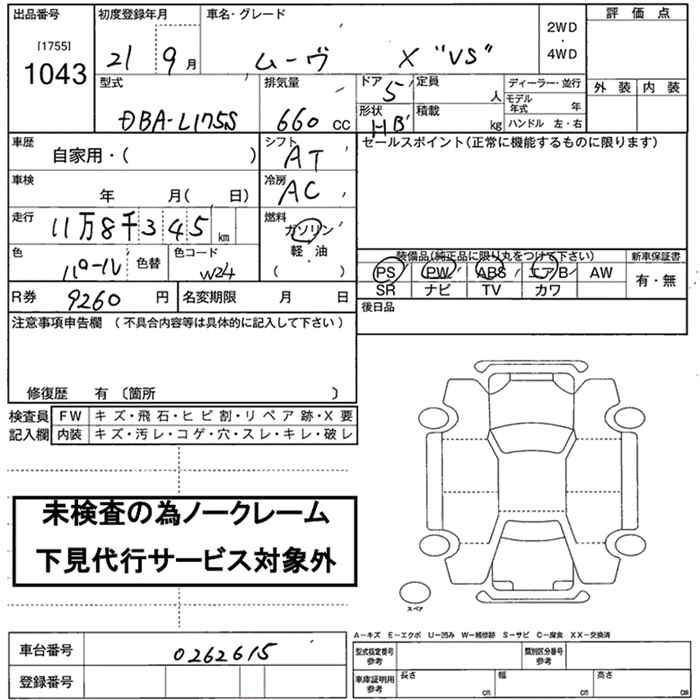 出品番号 初度登録年月 車名・グレード 2WD・4WD 評価点
[1755]
1043 21 9月 ムーヴ X "VS"
型式 排気量 ドア 5 定員 人 ディーラー・並行 外装 内装
DBA-L175S 660 cc 形状 HB 積載 kg モデル年式 年
ハンドル 左・右
車歴 シフト セールスポイント(正常に機能するものに限ります)
自家用・( ) AT
車検 冷房
年 月( 日) AC
走行 燃料
11万8千345km ガソリン
軽・油
( )
色 色替 色コード 装備品(純正品に限り丸をつけて下さい) 新車保証書
パール W24 PS PW ABS エアB AW 有・無
SR ナビ TV カワ
R券 9260 円 名変期限 月 日 後日品
注意事項申告欄 (不具合内容等は具体的に記入して下さい)
修復歴 有 〔箇所 〕
検査員 FW キズ・飛石・ヒビ割・リペア跡・X要
記入欄 内装 キズ・汚レ・コゲ・穴・スレ・キレ・破レ
未検査の為ノークレーム
下見代行サービス対象外
スペア
A－キズ E－エクボ U－凹み W－補修跡 S－サビ C－腐食 XX－交換済
車台番号 0262615 型式指定番号 参考 類別区分番号 参考
登録番号 車庫証明用 参考 長さ cm 幅 cm 高さ cm